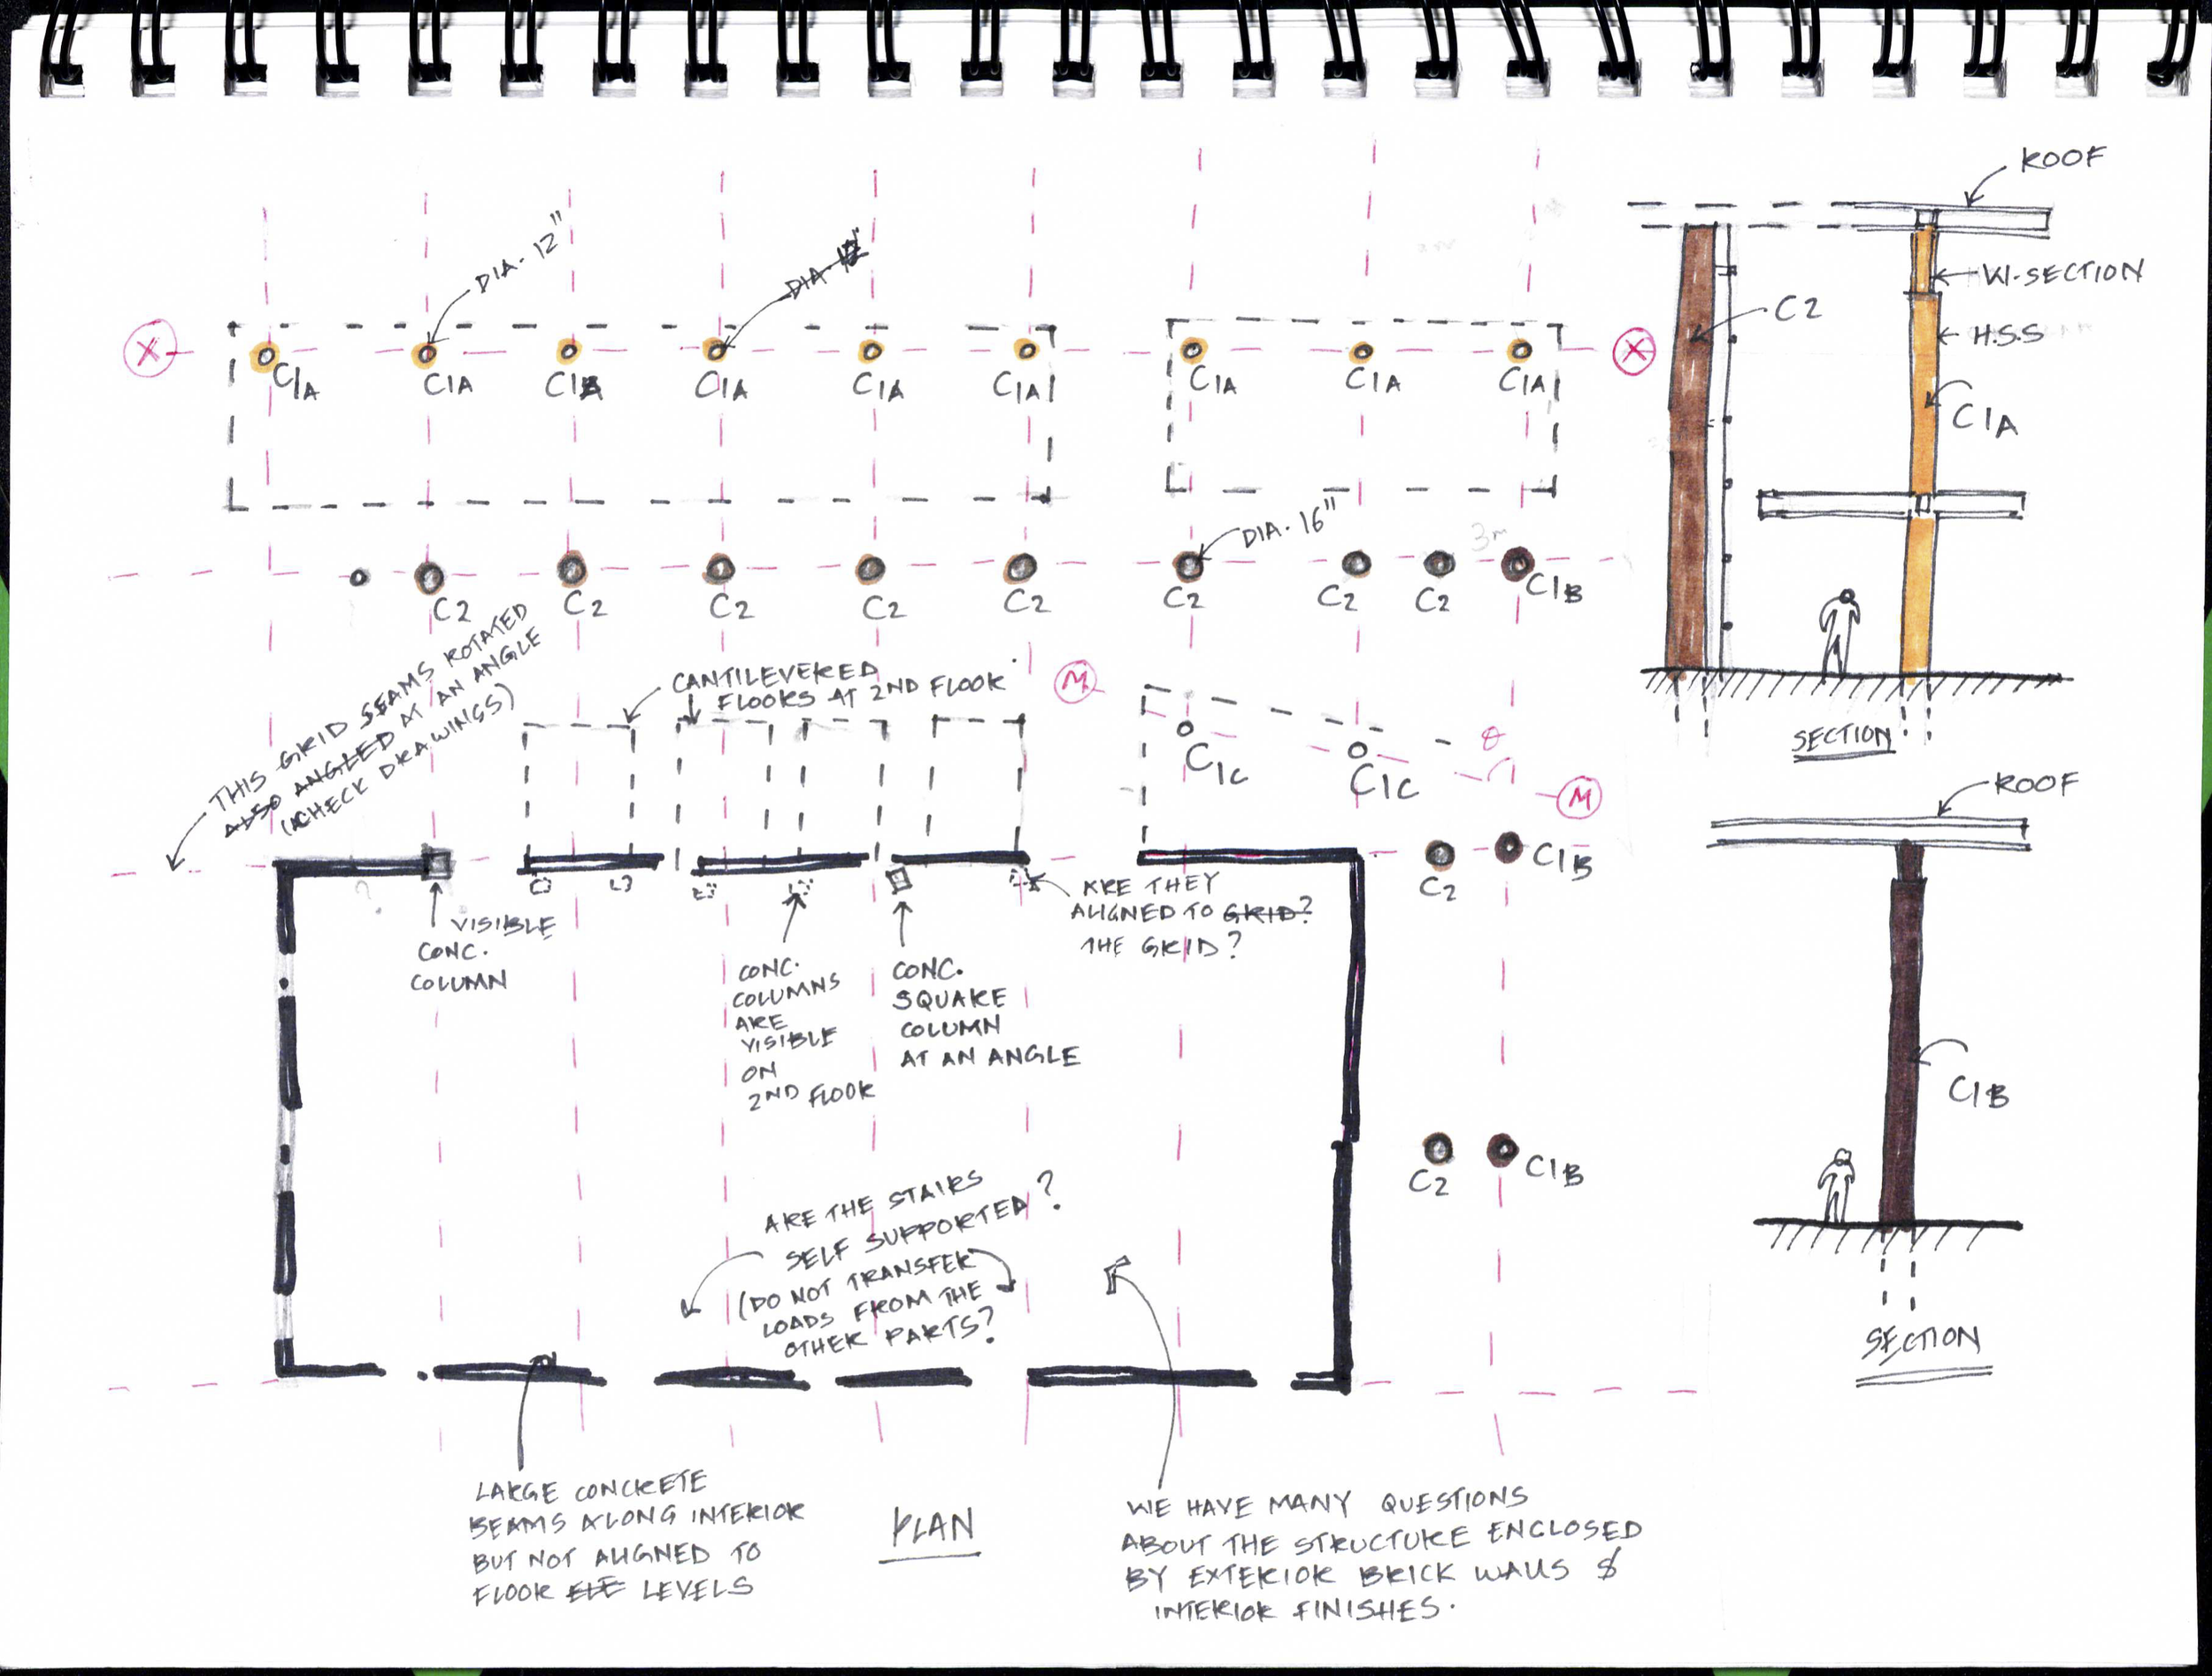 DIA. 12"
DIA. 12"
X
X
C1A
C1A
C1A
C1A
C1A
C1A
C1A
C1A
C1A
DIA. 16"
3m
C2
C2
C2
C2
C2
C2
C2
C2
C1B
THIS GRID SEAMS ROTATED
ALSO ANGLED AT AN ANGLE
(CHECK DRAWINGS)
CANTILEVERED
FLOORS AT 2ND FLOOR
M
θ
M
C1C
C1C
C2
C1B
?
VISIBLE
CONC.
COLUMN
CONC.
COLUMNS
ARE
VISIBLE
ON
2ND FLOOR
CONC.
SQUARE
COLUMN
AT AN ANGLE
ARE THEY
ALIGNED TO GRID?
THE GRID?
C2
C1B
ARE THE STAIRS
SELF SUPPORTED?
(DO NOT TRANSFER
LOADS FROM THE
OTHER PARTS?
LARGE CONCRETE
BEAMS ALONG INTERIOR
BUT NOT ALIGNED TO
FLOOR ELE LEVELS
PLAN
WE HAVE MANY QUESTIONS
ABOUT THE STRUCTURE ENCLOSED
BY EXTERIOR BRICK WALLS &
INTERIOR FINISHES.
ROOF
W-SECTION
C2
H.S.S
C1A
SECTION
ROOF
C1B
SECTION